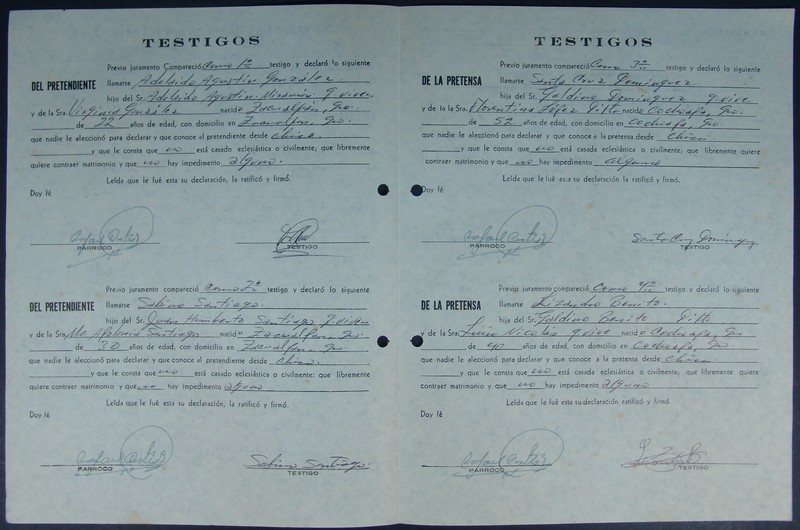 TESTIGOS
Previo juramento Compareció Como 1º testigo y declaró lo siguiente
DEL PRETENDIENTE llamarse Adelaido Agustin González.
hijo del Sr. Adelaido Agustin q vive
y de la Sra. Virginia González nacido
de 22 años de edad, con domicilio en
que nadie le aleccionó para declarar y que conoce al pretendiente desde chico
y que le consta que no está casado eclesiástica o civilmente; que libremente
quiere contraer matrimonio y que no hay impedimento alguno.
Leída que le fué esta su declaración, la ratificó y firmó.
Doy fé
Rafael
PARROCO
TESTIGO
Previo juramento compareció Como 2º testigo y declaró lo siguiente
DEL PRETENDIENTE llamarse Sabino Santiago.
hijo del Sr. Juan Humberto Santiago q vive
y de la Sra. Ma Santiago nacido
de 30 años de edad, con domicilio en
que nadie le aleccionó para declarar y que conoce al pretendiente desde chico.
y que le consta que no está casado eclesiástica o civilmente; que libremente
quiere contraer matrimonio y que no hay impedimento alguno
Leída que le fué esta su declaración, la ratificó y firmó.
Doy fé
Rafael
PARROCO
Sabino Santiago.
TESTIGO
TESTIGOS
Previo juramento compareció Como 3º testigo y declaró lo siguiente
DE LA PRETENSA llamarse Santa Cruz Dominguez
hijo del Sr. Galdino Dominguez q vive
y de la Sra. Florentina López nacido
de 52 años de edad, con domicilio en
que nadie le aleccionó para declarar y que conoce a la pretensa desde chica
y que le consta que no está casado eclesiástica o civilmente; que libremente quiere
contraer matrimonio y que no hay impedimento alguno
Leída que le fué esta su declaración, la ratificó y firmó.
Doy fé
Rafael
PARROCO
Santa Cruz Dominguez
TESTIGO
Previo juramento compareció Como 4º testigo y declaró lo siguiente
DE LA PRETENSA llamarse Lizandro Benito.
hijo del Sr. Galdino Benito
y de la Sra. Nicolás q vive nacido
de 40 años de edad, con domicilio en
que nadie le aleccionó para declarar y que conoce a la pretensa desde chica
y que le consta que no está casado eclesiástica o civilmente; que libremente quiere
contraer matrimonio y que no hay impedimento alguno
Leída que le fué esta su declaración ratificó y firmó.
Doy fé
Rafael
PARROCO
TESTIGO